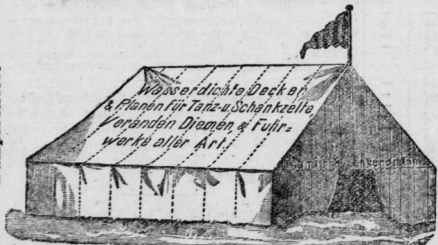 Wasserdichte Decken
& Planen für Tanz- u. Schankzelte
Veranden Diemen, & Fuhr=
werke aller Art.